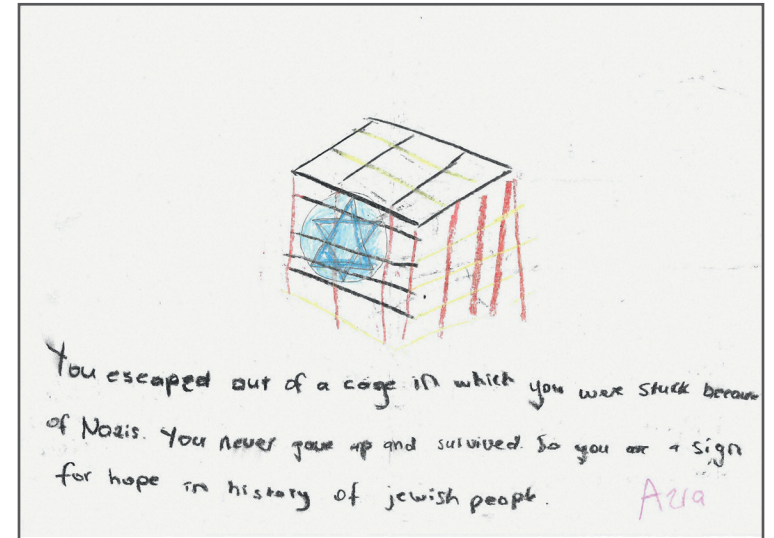 You escaped out of a cage in which you were stuck because
of Nazis. You never gave up and survived. So you are a sign
for hope in history of jewish people.
Azra